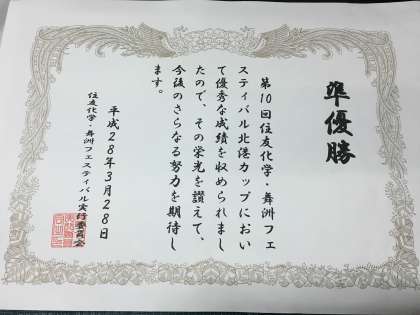 準優勝
第10回住友化学・舞洲フェ
スティバル北港カップにおい
て優秀な成績を収められまし
たので、その栄光を讃えて、
今後のさらなる努力を期待し
ます。
平成28年3月28日
住友化学・舞洲フェスティバル実行委員会